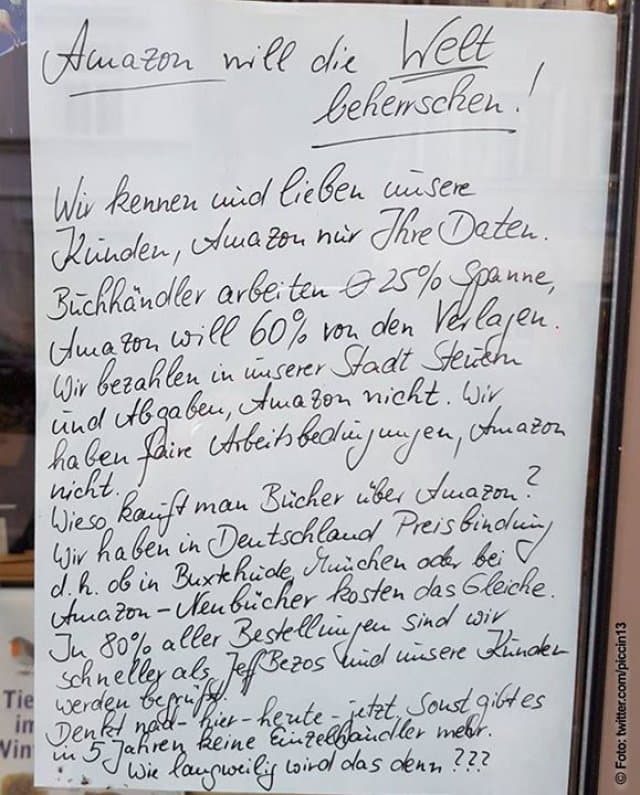 Amazon will die Welt
beherrschen!
Wir kennen und lieben unsere
Kunden, Amazon nur Ihre Daten.
Buchhändler arbeiten Ø 25% Spanne,
Amazon will 60% von den Verlagen.
Wir bezahlen in unserer Stadt Steuern
und Abgaben, Amazon nicht. Wir
haben faire Arbeitsbedingungen, Amazon
nicht.
Wieso kauft man Bücher über Amazon?
Wir haben in Deutschland Preisbindung
d.h. ob in Buxtehude, München oder bei
Amazon - Neubücher kosten das Gleiche.
In 80% aller Bestellungen sind wir
schneller als Jeff Bezos und unsere Kunden
werden begrüßt.
Denkt nach - hier - heute - jetzt, sonst gibt es
in 5 Jahren keine Einzelhändler mehr.
Wie langweilig wird das denn???
Tie
im
Win
© Foto: twitter.com/piccin13